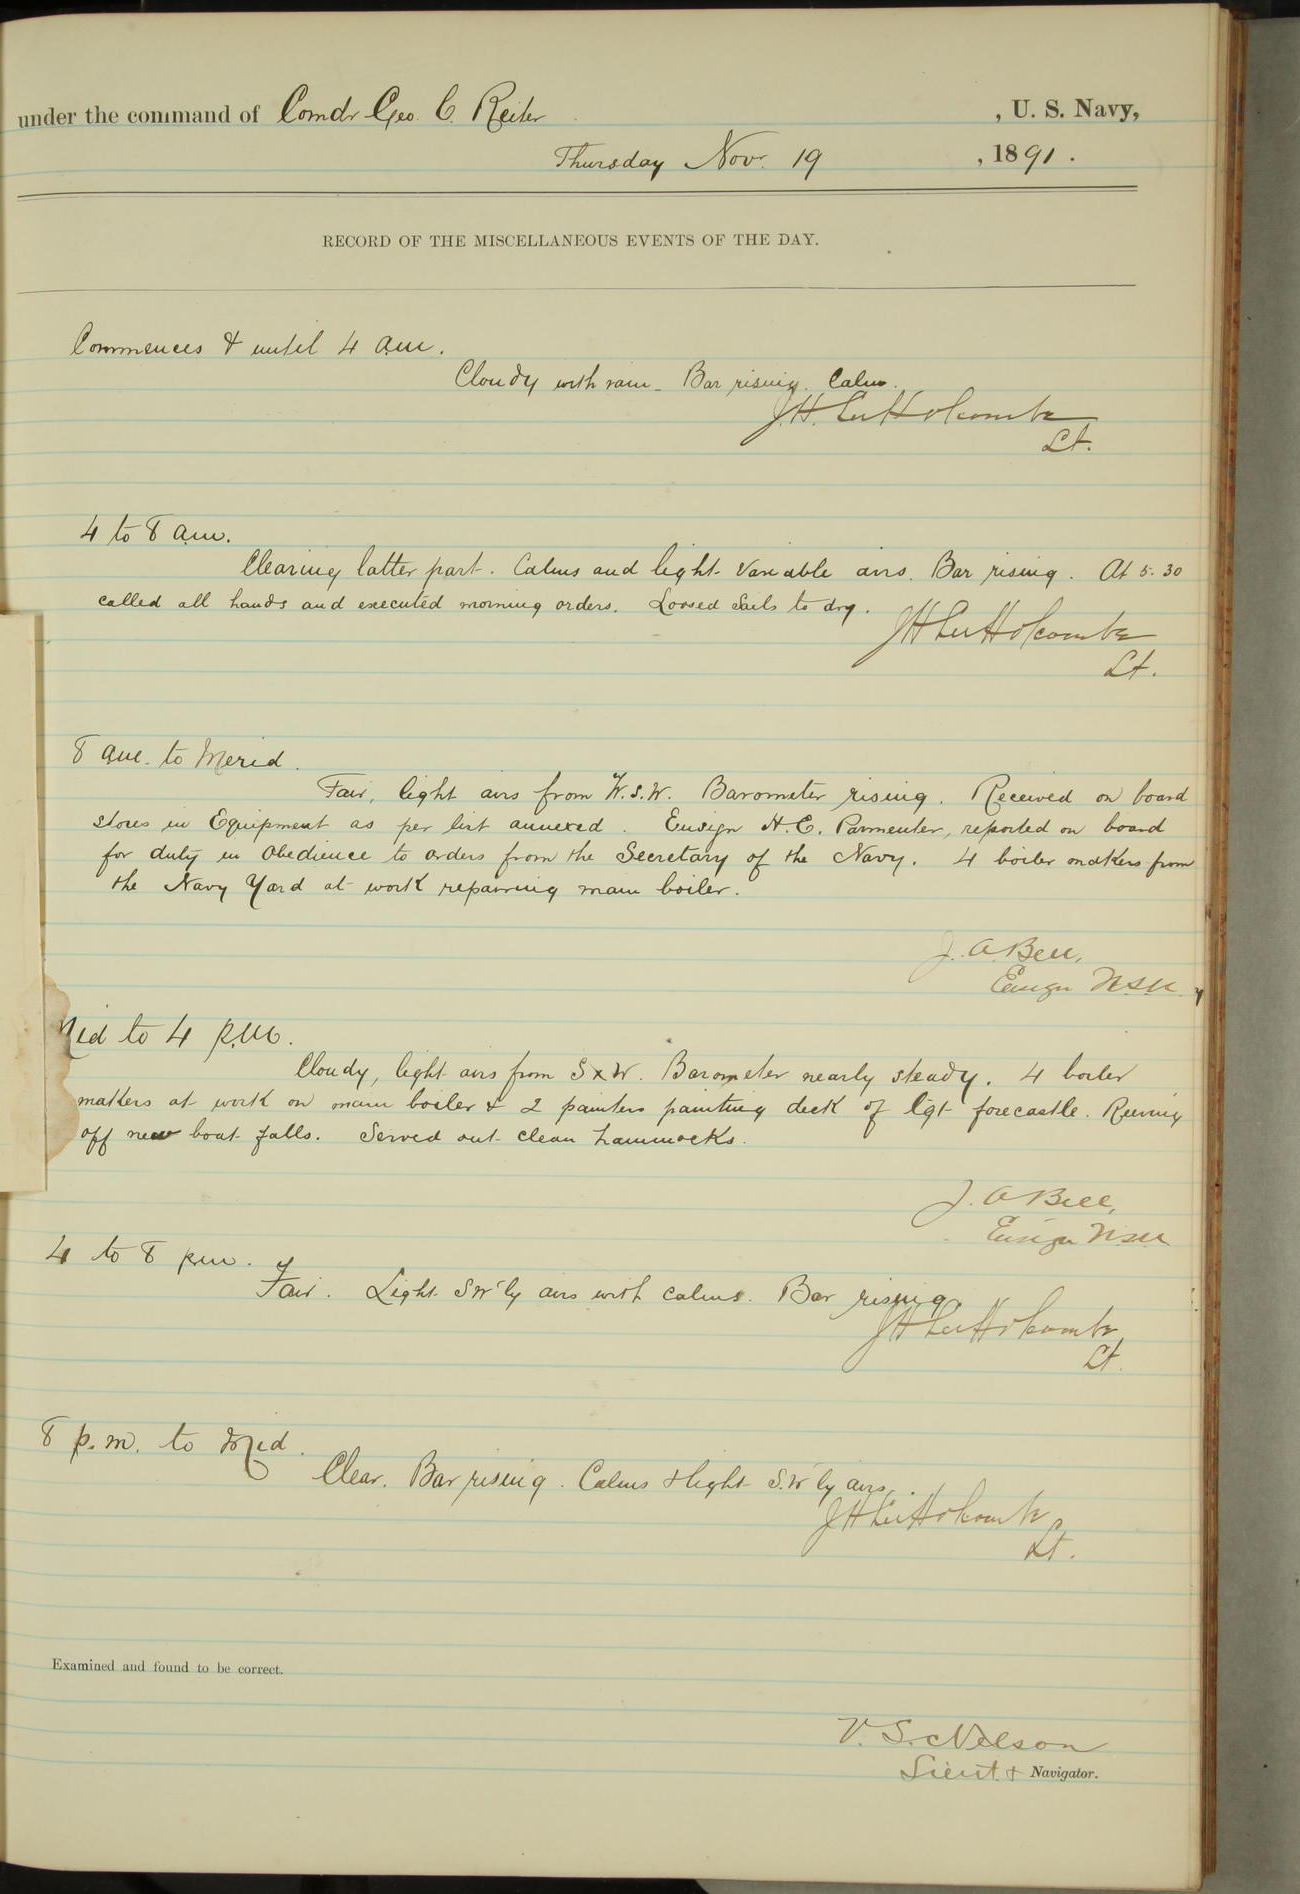 under the command of Comdr Geo. C. Reiter , U. S. Navy,
Thursday Nov. 19 , 1891.
RECORD OF THE MISCELLANEOUS EVENTS OF THE DAY.
Commences & until 4 a.m.
Cloudy with rain - Bar rising. Calm.
J.H. Lee Holcombe
Lt.
4 to 8 a.m.
Clearing latter part. Calms and light variable airs. Bar rising. At 5.30
called all hands and executed morning orders. Loosed sails to dry.
J H Lee Holcombe
Lt.
8 a.m. to Merid.
Fair, light airs from W.S.W. Barometer rising. Received on board
stores in Equipment as per list annexed. Ensign H. E. Parmenter, reported on board
for duty in obedience to orders from the Secretary of the Navy. 4 boiler makers from
the Navy Yard at work repairing main boiler.
J. A. Bell,
Ensign U.S.N.
Mid to 4 P.M.
Cloudy, light airs from S x W. Barometer nearly steady. 4 boiler
makers at work on main boiler & 2 painters painting deck of lgt forecastle. Reeving
off new boat falls. Served out clean hammocks.
J. A. Bell,
Ensign U.S.N.
4 to 8 p.m.
Fair. Light SW'ly airs with calms. Bar rising.
J H Lee Holcombe
Lt.
8 p.m. to Mid.
Clear. Bar rising. Calms & light S.W'ly airs.
J H Lee Holcombe
Lt.
Examined and found to be correct.
V. S. Nelson
Lieut. & Navigator.